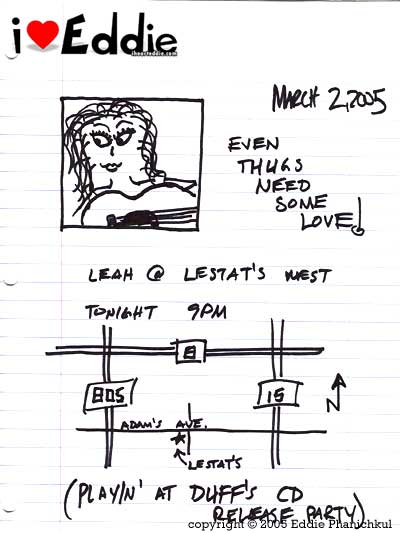 i ♥ Eddie
ihearteddie.com
MARCH 2, 2005
EVEN
THUGS
NEED
SOME
LOVE!
LEAH @ LESTAT'S WEST
TONIGHT 9PM
8
805
15
N
ADAM'S AVE.
LESTAT'S
(PLAYIN' AT DUFF'S CD
RELEASE PARTY)
copyright © 2005 Eddie Phanichkul